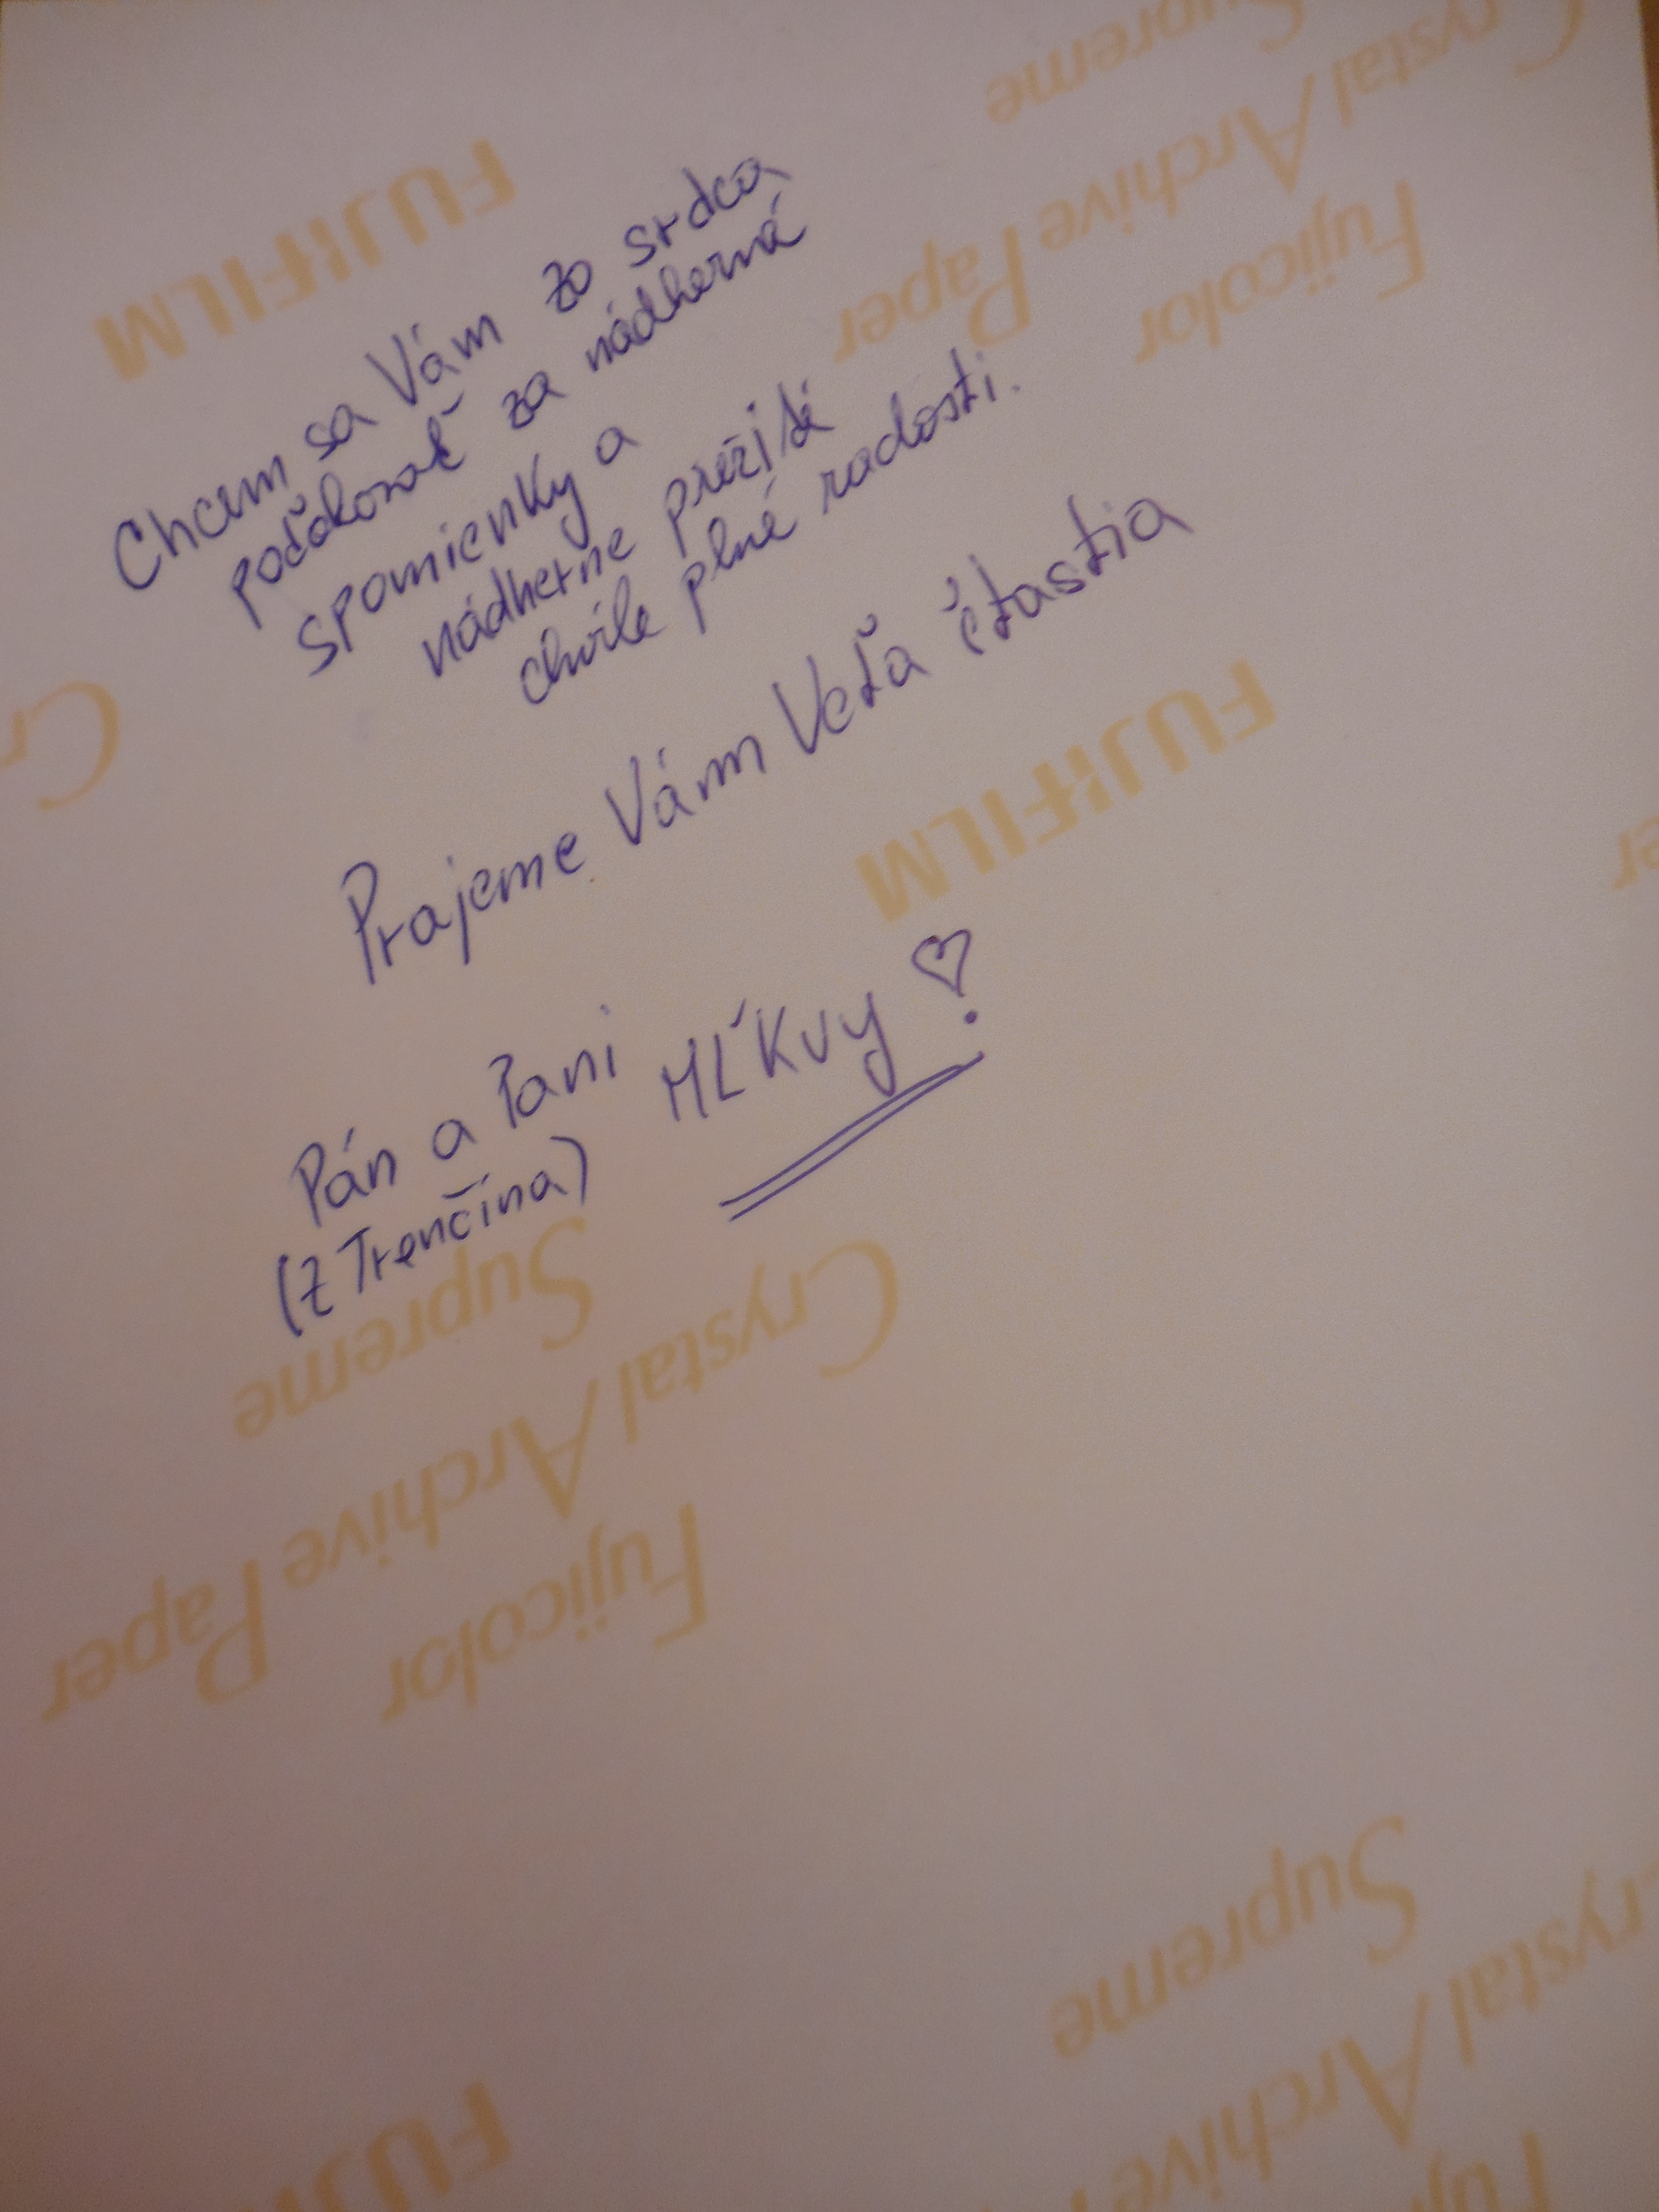 Chcem sa Vám zo srdca
poďakovať za nádherná
spomienky a
nádherne prežité
chvíle plné radosti.
Prajeme Vám Veľa šťastia
Pán a Pani MĹKVY
(z Trenčína)
FUJIFILM
Crystal Archive Paper
Supreme
Fujicolor
FUJIFILM
Fujicolor
Crystal Archive Paper
Supreme
Supreme
FUJIFILM